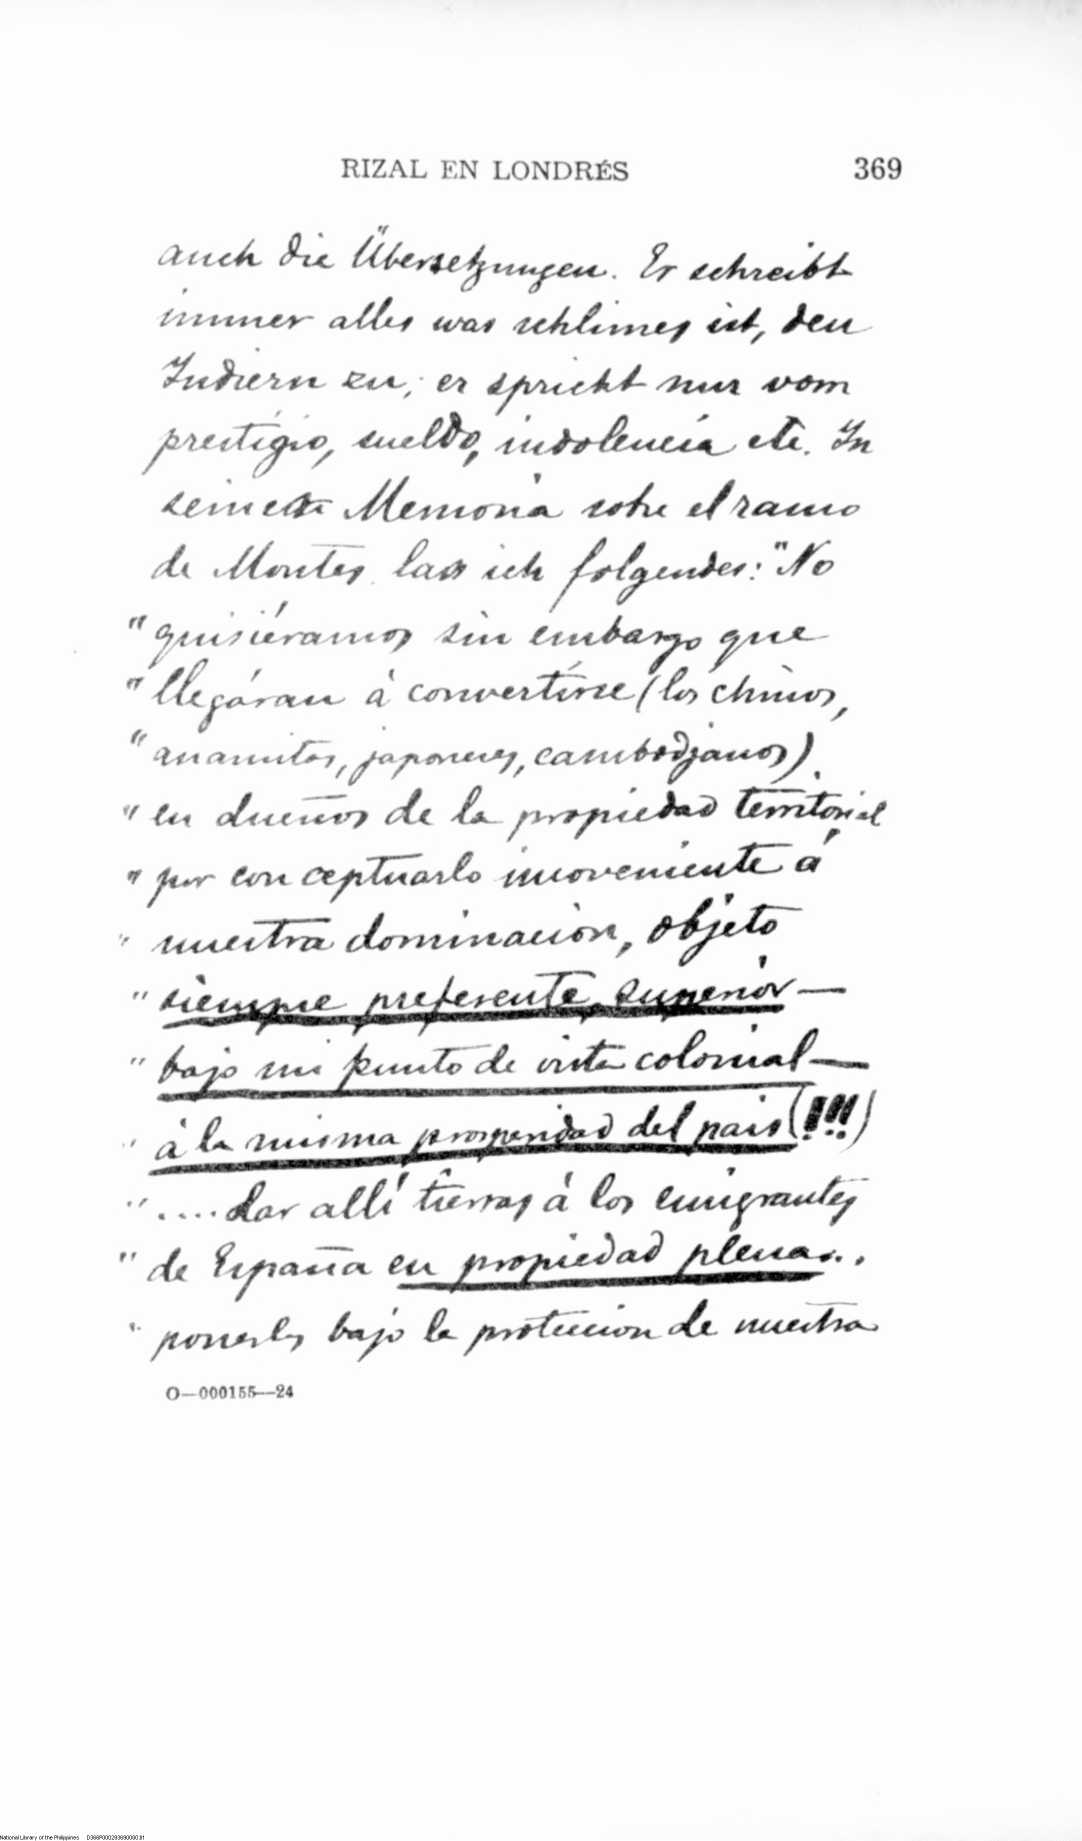 RIZAL EN LONDRÉS 369
auch die Übersetzungen. Er schreibt
immer alles was schlimes ist, den
Indiern zu; er spricht nur vom
prestígio, sueldo, indolencia etc. In
seine Memoria sobre el ramo
de Montes las ich folgendes: "No
" quisiéramos sin embargo que
" llegáran á convertirse (los chinos,
" anamitas, japoneses, cambodjanos)
" en dueños de la propiedad territorial
" por conceptuarlo inconveniente á
" nuestra dominación, objeto
" siempre preferente, superior —
" bajo mi punto de vista colonial —
" á la misma prosperidad del pais (!!!)
" .... dar allí tierras á los emigrantes
" de España en propiedad plena...
" ponerles bajo la proteccion de nuestra
O—000155—24
National Library of the Philippines